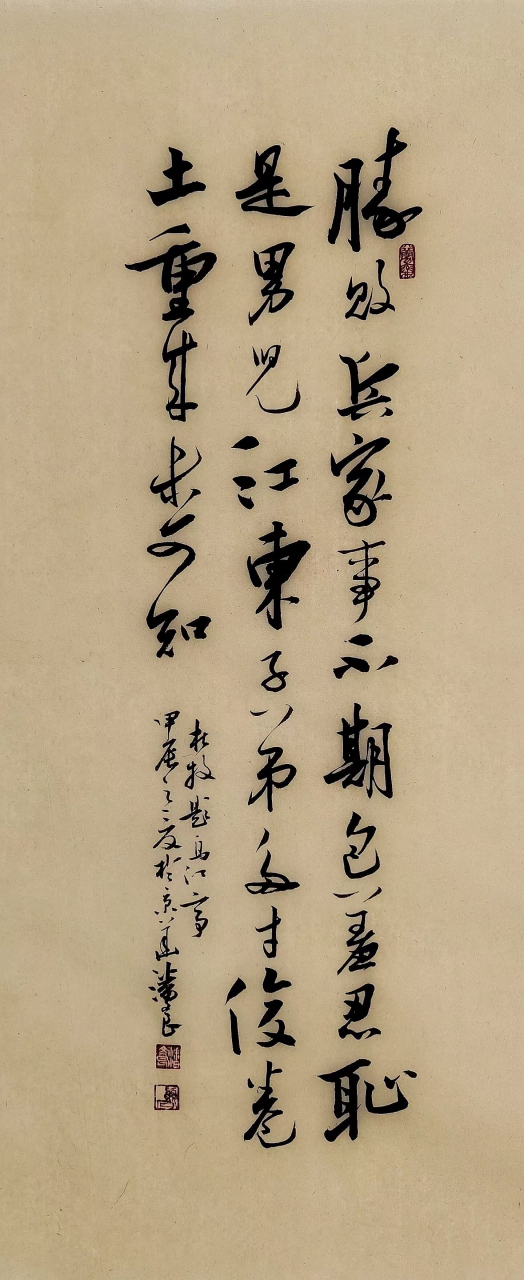 勝敗兵家事不期包羞忍恥
是男兒江東子弟多才俊卷
土重來未可知
杜牧題烏江亭
甲辰之夏於京華潘